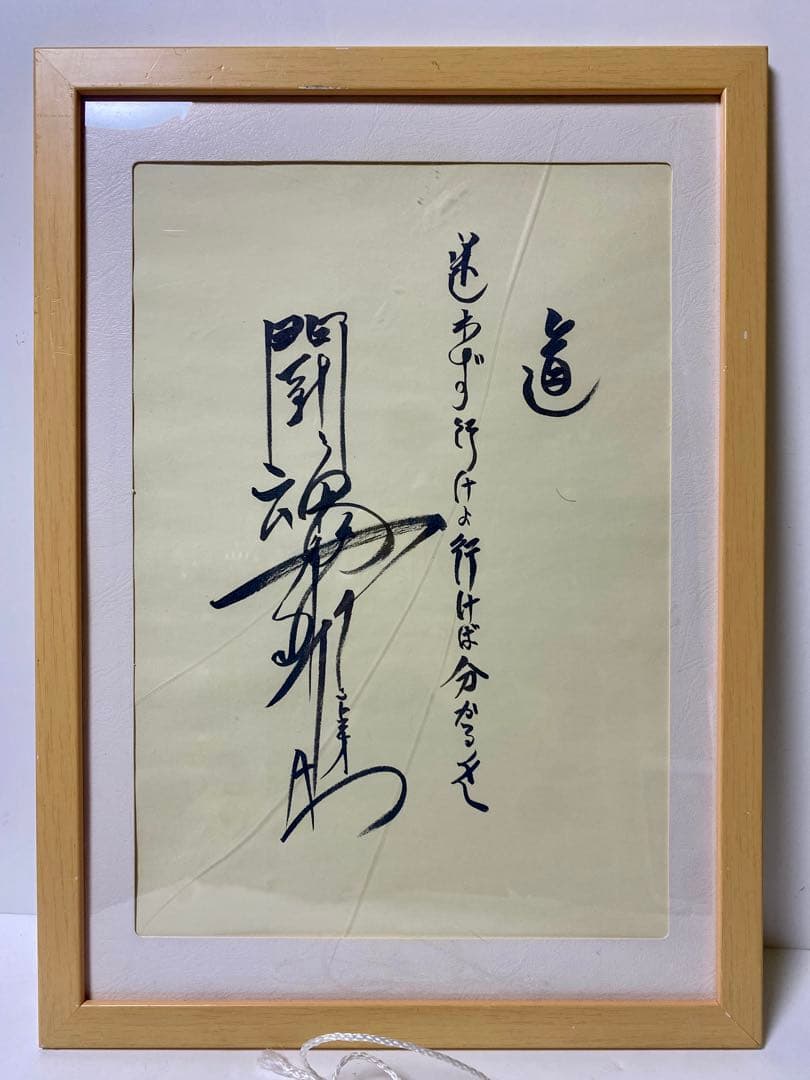 道
迷わず行けよ行けば分かるさ
闘魂